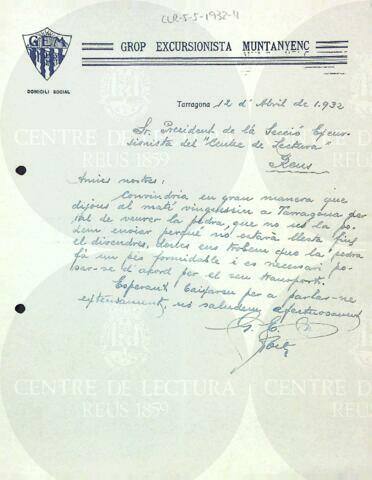 CLR-5-5-1932-4
GEM
GROP EXCURSIONISTA MUNTANYENC
DOMICILI SOCIAL
Tarragona 12 d'Abril de 1.932
Sr. President de la Secció Excur-
sionista del "Centre de Lectura"
Reus
Amics nostres:
Convindria en gran manera que
dijous al matí vinguessin a Tarragona per
tal de veurer la pedra, que no us la po-
dem enviar perquè no estarà llesta fins
el divendres, doncs ens trobem que la pedra
fà un pes formidable i es necessari po-
sar-se d'acord per el seu transport.
Esperant per a parlar-ne
extensament, us saludem afectuosament
CENTRE DE LECTURA
REUS 1859
CENTRE DE LECTURA
REUS 1859
CENTRE DE LECTURA
REUS 1859
CENTRE DE LECTURA
REUS 1859